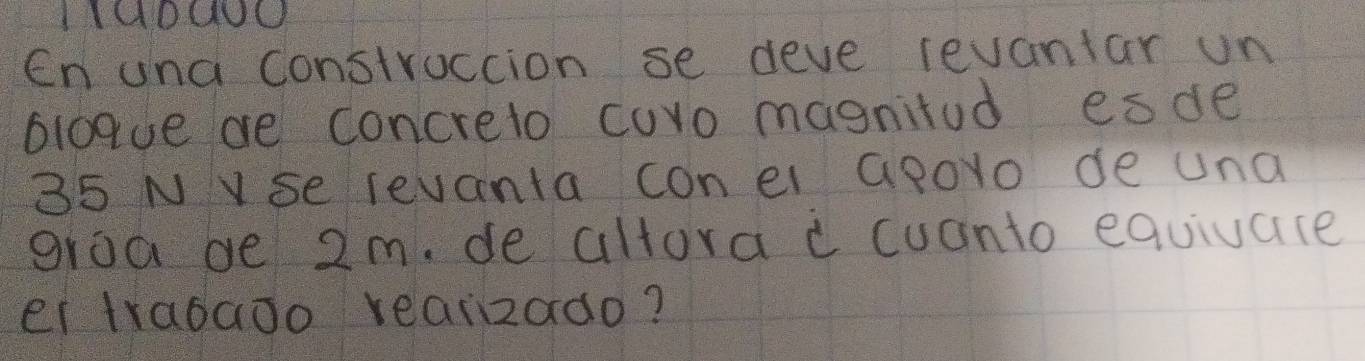 Trabajo
En una construccion se deve levantar un
bloque de concreto cuyo magnitud es de
35 N y se levanta con el apoyo de una
grua de 2 m. de altura ¿ cuanto equivale
el trabajo realizado?